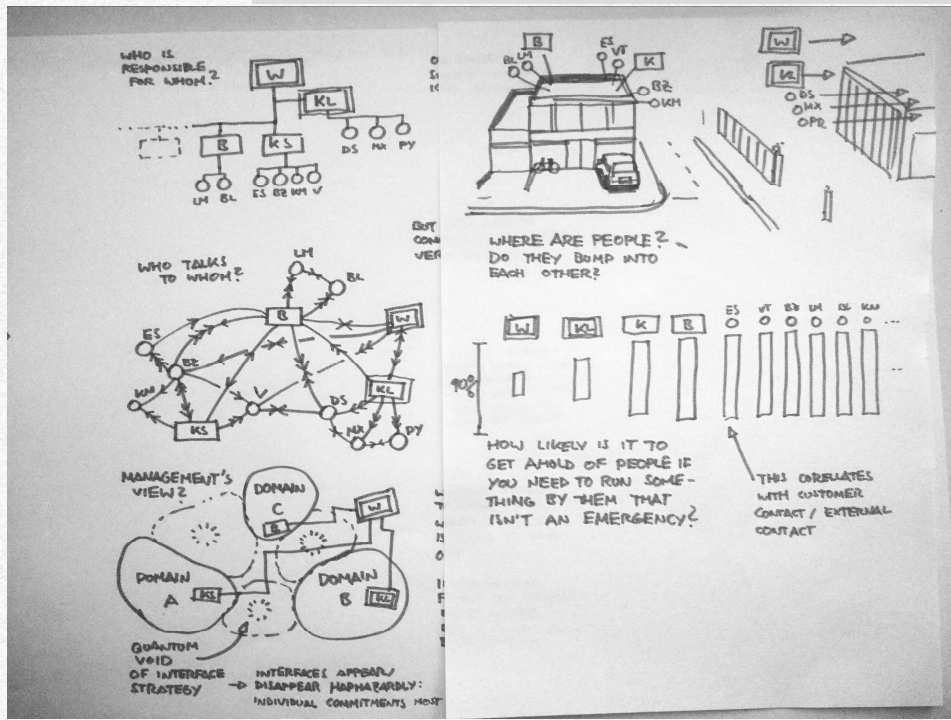 WHO IS
RESPONSIBLE
FOR WHOM?
W
KL
B
KS
DS NX PY
LM BL
ES BZ KM V
WHO TALKS
TO WHOM?
LM
BL
B
W
ES
BZ
KN
KS
V
DS
KL
NX
PY
MANAGEMENT'S
VIEW?
DOMAIN
C
B
W
DOMAIN
A
KS
DOMAIN
B
KL
QUANTUM
VOID
OF INTERFACE
STRATEGY
→ INTERFACES APPEAR/
DISAPPEAR HAPHAZARDLY:
INDIVIDUAL COMMITMENTS MOST
BUT
CON
VER
B
BL LM
ES VT
K
BZ
KM
W
KL
DS
NX
OPR
WHERE ARE PEOPLE?
DO THEY BUMP INTO
EACH OTHER?
W KL K B ES VT BZ LM BL KN ...
90%
HOW LIKELY IS IT TO
GET AHOLD OF PEOPLE IF
YOU NEED TO RUN SOME-
THING BY THEM THAT
ISN'T AN EMERGENCY?
THIS CORELLATES
WITH CUSTOMER
CONTACT / EXTERNAL
CONTACT